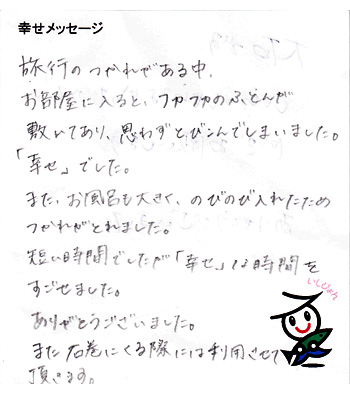 幸せメッセージ
旅行のつかれがある中、
お部屋に入ると、フカフカのふとんが
敷いてあり、思わずとびこんでしまいました。
「幸せ」でした。
また、お風呂も大きく、のびのび入れたため
つかれがとれました。
短い時間でしたが「幸せ」な時間を
すごせました。
ありがとうございました。
また石巻にくる際には利用させて
頂きます。
いしぴょん